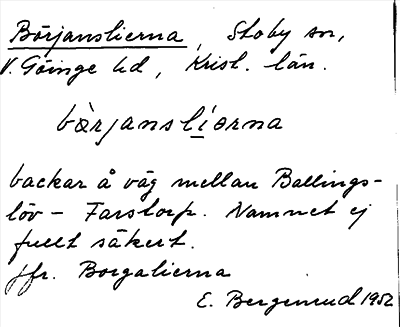 Börjanslierna, Stoby sn,
V. Göinge hd, Krist. län.
bòrjanslíərna
backar å väg mellan Ballings-
löv - Farstorp. Namnet ej
fullt säkert.
jfr. Borgalierna
E. Bergenrud 1952